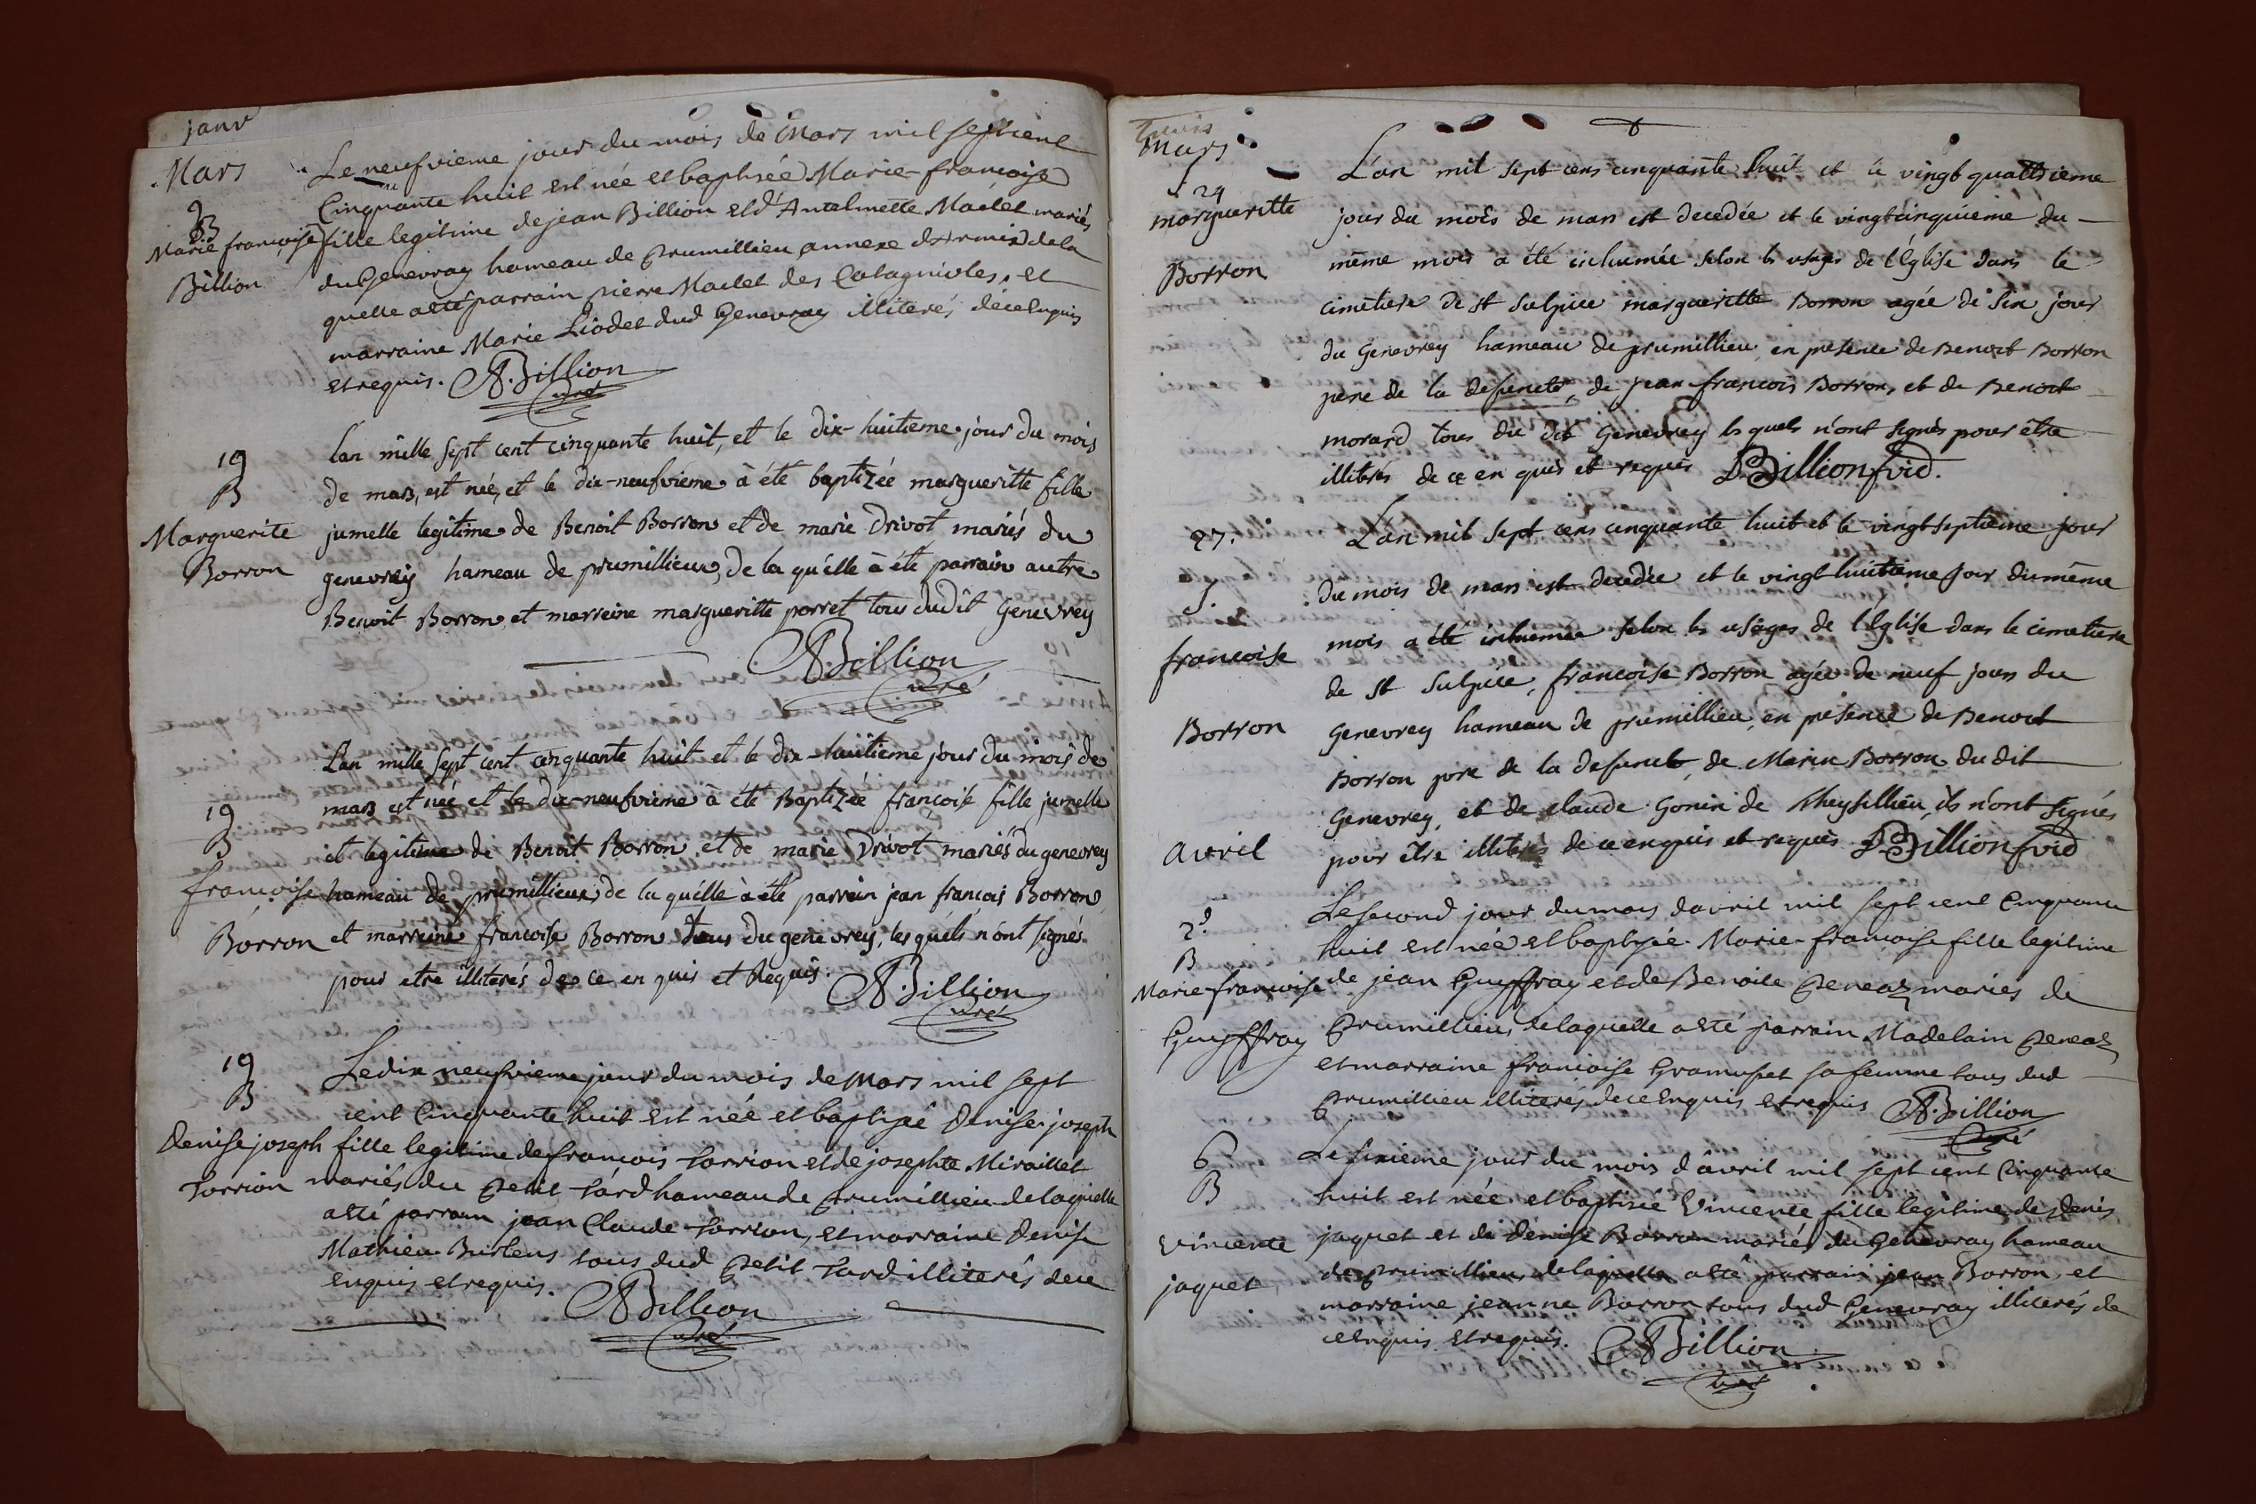 janv
Mars
9
B
Marie françoise
Billion
Le neufvieme jour du mois de Mars mil septcent
Cinquante huit est née et baptisée Marie-françoise
fille legitime de jean Billion et d'Antelmette Maclet mariés
du Genevray hameau de Prumillieu annexe de la
quelle a été parrain pierre Maclet des Catagnioles, et
marraine Marie Liodet dud Genevray illiterés de ce enquis
et requis. A. Billion
curé
19
B
Marguerite
Borron
L'an mille sept cent cinquante huit, et le dix-huitieme jour du mois
de mars, est née, et le dix-neufvieme à été baptizée margueritte fille
jumelle legitime de Benoit Borron et de marie Drivot mariés du
genevrey hameau de prumillieux, de la qu'elle à été parrain autre
Benoit Borron, et marreine margueritte porret tous dudit Genevrey
A. Billion
curé
19
B
françoise
Borron
L'an mille sept cent cinquante huit et le dix-huitieme jour du mois de
mars est née et le dix-neufvieme à été Baptizée françoise fille jumelle
et legitime de Benoit Borron et de marie Drivot mariés du genevrey
hameau de prumillieux, de la qu'elle à été parrain jean francois Borron
et marreine francoise Borron tous du genevrey, les quels n'ont signés
pour etre illiterés de ce en quis et Requis.
A. Billion
curé
19
B
Denise joseph
Torrion
Le dix neufvieme jour du mois de Mars mil sept
cent Cinquante huit est née et baptisée Denise joseph
fille legitime de francois Torrion et de josephte Miraillet
mariés du Petit Tard hameau de Prumillieu de laquelle
a été parrain jean Claude Torrion, et marraine Denise
Mathieu Burlens tous dud Petit Tard illiterés de ce
enquis et requis.
A Billion
curé
Mars
S 24
margueritte
Borron
L'an mil sept cens cinquante huit et le vingt quattrieme
jour du mois de mars est decedée et le vingt cinquieme du
même mois a été inhumée selon les usages de l'Église dans le
cimetiere de st Sulpice margueritte Borron agée de six jour
du Genevrey hameau de prumillieu, en presence de Benoit Borron
pere de la defuncte, de jean francois Borron, et de Benoit
morard tous du dit Genevrey les quels n'ont signés pour être
illitérés de ce en quis et requis Billion fvid.
27.
S.
francoise
Borron
L'an mil sept cens cinquante huit et le vingt septieme jour
du mois de mars est decedée et le vingt huitieme jour du même
mois a été inhumée selon les usages de l'Eglise dans le cimetiere
de St Sulpice, francoise Borron agée de neuf jours du
Genevrey hameau de prumillieu, en presence de Benoit
Borron pere de la defuncte, de Marin Borron du dit
Genevrey, et de claude Gonin de theysillieu, ils n'ont signés
pour être illiterés de ce enquis et requis Billion fvid
avril
2d
B
Marie-francoise
Guyffray
Le second jour du mois d'avril mil sept cent Cinquante
huit est née et baptisée Marie-francoise fille legitime
de jean Guyffray et de Benoite Peneaz mariés de
Prumillieu, de laquelle a été parrain Madelain Peneaz
et marraine francoise Gramuset sa femme tous dud
Prumillieu illiterés de ce Enquis et requis A. Billion
curé
6
B
Vincente
jaquet
Le sixieme jour du mois d'avril mil sept cent Cinquante
huit est née et baptisée Vincente fille legitime de Denis
jaquet et de Denise Borron mariés du Genevray hameau
de prumillieu, de laquelle a été parrain jean Borron, et
marraine jeanne Borron tous dud Genevray illiterés de
ce Enquis et requis. A Billion
curé